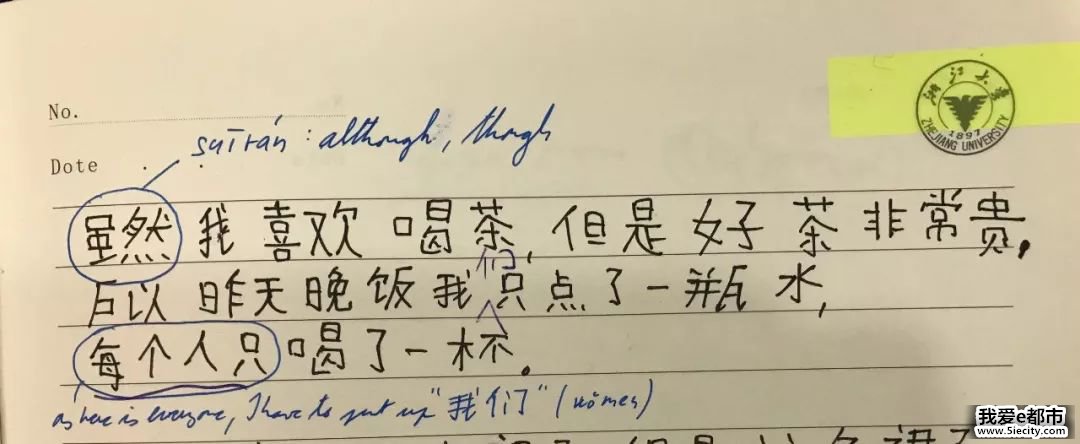 No.
suīrán : although, though
Dote
浙江大学
ZHEJIANG UNIVERSITY
1897
虽然我喜欢喝茶,但是好茶非常贵,
们
所以昨天晚饭我只点了一瓶水,
每个人只喝了一杯.
as here is everyone, I have to put up "我们" (wǒmen)
我爱e都市
www.5iecity.com